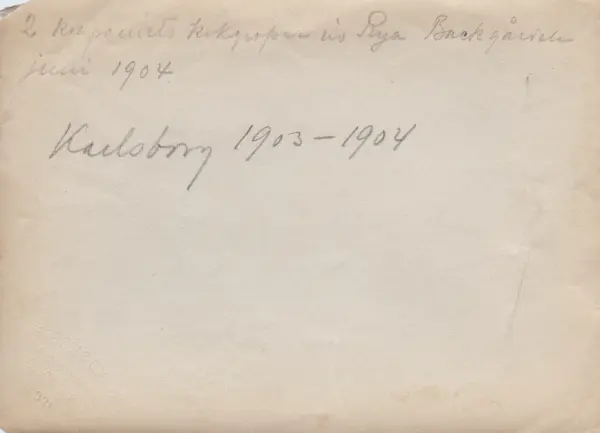 2 kompaniets kokgropar vid Rya Backgården
juni 1904
Karlsborg 1903-1904